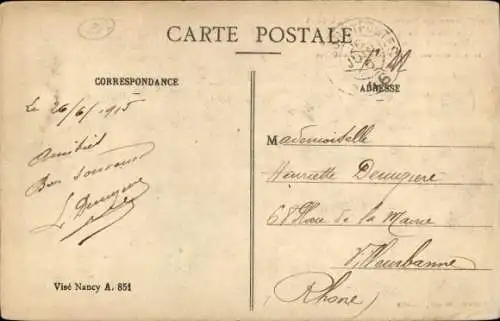 CARTE POSTALE
CORRESPONDANCE
ADRESSE
Le 26/6/1915
Amitiés
Bon souvenir
L Denuguere
Mademoiselle
Henriette Denuguere
68 Place de la Mairie
Villeurbanne
(Rhône)
Visé Nancy A. 851